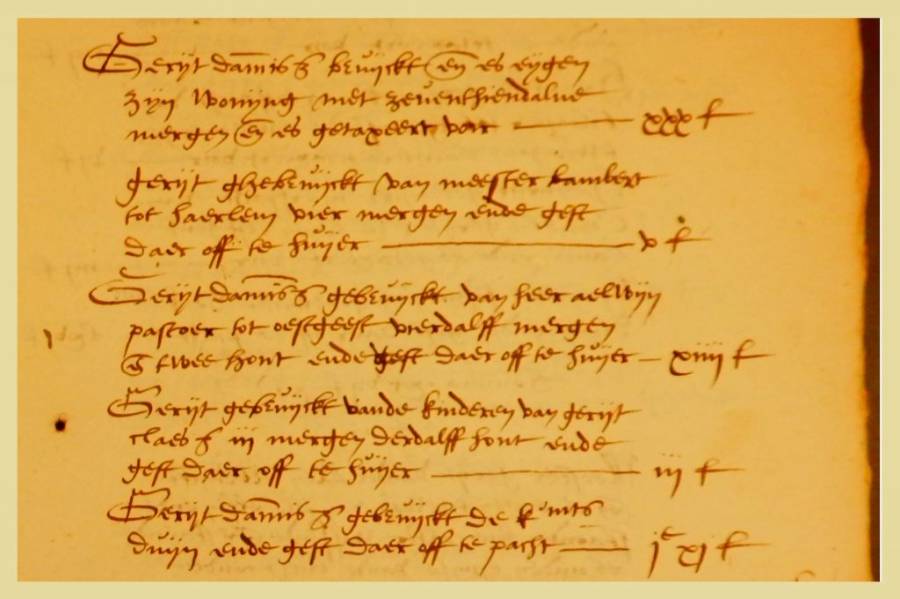 Gerijt dam̄is ʒ brůijckt en̄ es eygen
zijn woninng met zeventhiendalve
mergen en̄ es getaxeert voir xxx ł
gerijt ghebrůijckt van meester Lambert
tot haerlem vier mergen ende geft
daer off te hůijer v ł
Gerijt dam̄is ʒ gebrůijckt van heer aelwijn
pastoer tot oestgeest vierdalff mergen
twee hont ende geft daer off te hůijer xiiij ł
Gerijt gebrůijckt vande kinderen van gerijt
claes ʒ iij mergen derdalff hont ende
geft daer off te hůijer iij ł
Gerijt dam̄is ʒ gebrůijckt de
duijn ende geft daer off te pacht jᶜ xj ł